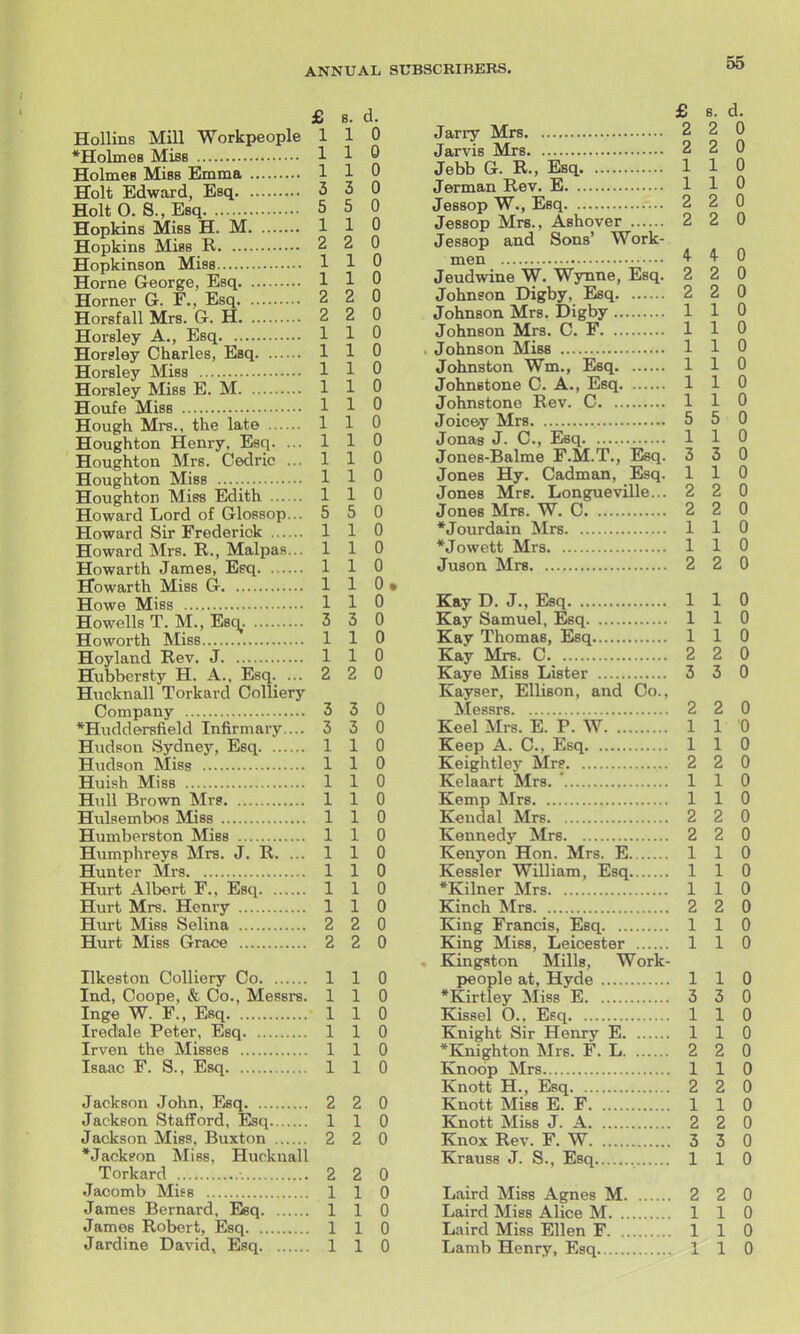 ANNUAL SUBSCRIBERS.
55
£ s. d.
Hollins Mill Workpeople 1 1 0
*Holmes Miss ........ 1 1 0
Holmes Miss Emma ........ 1 1 0
Holt Edward, Esq. ........ 3 3 0
Holt O. S., Esq. ........ 5 5 0
Hopkins Miss H. M. ........ 1 1 0
Hopkins Miss R. ........ 2 2 0
Hopkinson Miss ........ 1 1 0
Horne George, Esq. ........ 1 1 0
Horner G. F., Esq. ........ 2 2 0
Horsfall Mrs. G. H. ........ 2 2 0
Horsley A., Esq. ........ 1 1 0
Horsley Charles, Esq. ........ 1 1 0
Horsley Miss ........ 1 1 0
Horsley Miss E. M. ........ 1 1 0
Houfe Miss ........ 1 1 0
Hough Mrs., the late ...... 1 1 0
Houghton Henry, Esq. ... 1 1 0
Houghton Mrs. Cedric ... 1 1 0
Houghton Miss ........ 1 1 0
Houghton Miss Edith ...... 1 1 0
Howard Lord of Glossop... 5 5 0
Howard Sir Frederick ...... 1 1 0
Howard Mrs. R., Malpas... 1 1 0
Howarth James, Esq. ...... 1 1 0
Howarth Miss G. ........ 1 1 0
Howe Miss ........ 1 1 0
Howells T. M., Esq. ........ 3 3 0
Howorth Miss ........ 1 1 0
Hoyland Rev. J. ........ 1 1 0
Hubbersty H. A., Esq. ... 2 2 0
Hucknall Torkard Colliery
Company ........ 3 3 0
*Huddersfield Infirmary.... 3 3 0
Hudson Sydney, Esq. ...... 1 1 0
Hudson Miss ........ 1 1 0
Huish Miss ........ 1 1 0
Hull Brown Mrs. ........ 1 1 0
Hulsembos Miss ........ 1 1 0
Humberston Miss ........ 1 1 0
Humphreys Mrs. J. R. ... 1 1 0
Hunter Mrs. ........ 1 1 0
Hurt Albert F., Esq. ...... 1 1 0
Hurt Mrs. Henry ........ 1 1 0
Hurt Miss Selina ........ 2 2 0
Hurt Miss Grace ........ 2 2 0
Ilkeston Colliery Co. ...... 1 1 0
Ind, Coope, & Co., Messrs. 1 1 0
Inge W. F., Esq. ........ 1 1 0
Iredale Peter, Esq. ........ 1 1 0
Irven the Misses ........ 1 1 0
Isaac F. S., Esq. ........ 1 1 0
Jackson John, Esq. ........ 2 2 0
Jackson Stafford, Esq. ...... 1 1 0
Jackson Miss, Buxton ...... 2 2 0
*Jackson Miss, Hucknall
Torkard ........ 2 2 0
Jacomb Miss ........ 1 1 0
James Bernard, Esq. ...... 1 1 0
James Robert, Esq. ........ 1 1 0
Jardine David, Esq. ...... 1 1 0
£ s. d.
Jarry Mrs. ........ 2 2 0
Jarvis Mrs. ........ 2 2 0
Jebb G. R., Esq. ........ 1 1 0
Jerman Rev. E. ........ 1 1 0
Jessop W., Esq. ........ 2 2 0
Jessop Mrs., Ashover ...... 2 2 0
Jessop and Sons' Work-
men ........ 4 4 0
Jeudwine W. Wynne, Esq. 2 2 0
Johnson Digby, Esq. ...... 2 2 0
Johnson Mrs. Digby ........ 1 1 0
Johnson Mrs. C. F. ........ 1 1 0
Johnson Miss ........ 1 1 0
Johnston Wm., Esq. ........ 1 1 0
Johnstone C. A., Esq. ...... 1 1 0
Johnstone Rev. C. ........ 1 1 0
Joicey Mrs. ........ 5 5 0
Jonas J. C., Esq. ........ 1 1 0
Jones-Balme F.M.T., Esq. 3 3 0
Jones Hy. Cadman, Esq. 1 1 0
Jones Mrs. Longueville... 2 2 0
Jones Mrs. W. C. ........ 2 2 0
*Jourdain Mrs. ........ 1 1 0
*Jowett Mrs. ........ 1 1 0
Juson Mrs. ........ 2 2 0
Kay D. J., Esq. ........ 1 1 0
Kay Samuel, Esq. ........ 1 1 0
Kay Thomas, Esq. ........ 1 1 0
Kay Mrs. C. ........ 2 2 0
Kaye Miss Lister ........ 3 3 0
Kayser, Ellison, and Co.,
Messrs. ........ 2 2 0
Keel Mrs. E. P. W. ........ 1 1 0
Keep A. C., Esq. ........ 1 1 0
Keightley Mrs. ........ 2 2 0
Kelaart Mrs. ........ 1 1 0
Kemp Mrs. ........ 1 1 0
Kendal Mrs. ........ 2 2 0
Kennedy Mrs. ........ 2 2 0
Kenyon Hon. Mrs. E. ...... 1 1 0
Kessler William, Esq. ...... 1 1 0
*Kilner Mrs. ........ 1 1 0
Kinch Mrs. ........ 2 2 0
King Francis, Esq. ........ 1 1 0
King Miss, Leicester ...... 1 1 0
Kingston Mills, Work-
people at, Hyde ........ 1 1 0
*Kirtley Miss E. ........ 3 3 0
Kissel O., Esq. ........ 1 1 0
Knight Sir Henry E. ...... 1 1 0
*Knighton Mrs. F. L. ...... 2 2 0
Knoop Mrs. ........ 1 1 0
Knott H., Esq. ........ 2 2 0
Knott Miss E. F. ........ 1 1 0
Knott Miss J. A. ........ 2 2 0
Knox Rev. F. W. ........ 3 3 0
Krauss J. S., Esq. ........ 1 1 0
Laird Miss Agnes M. ...... 2 2 0
Laird Miss Alice M. ........ 1 1 0
Laird Miss Ellen F. ........ 1 1 0
Lamb Henry, Esq. ........ 1 1 0